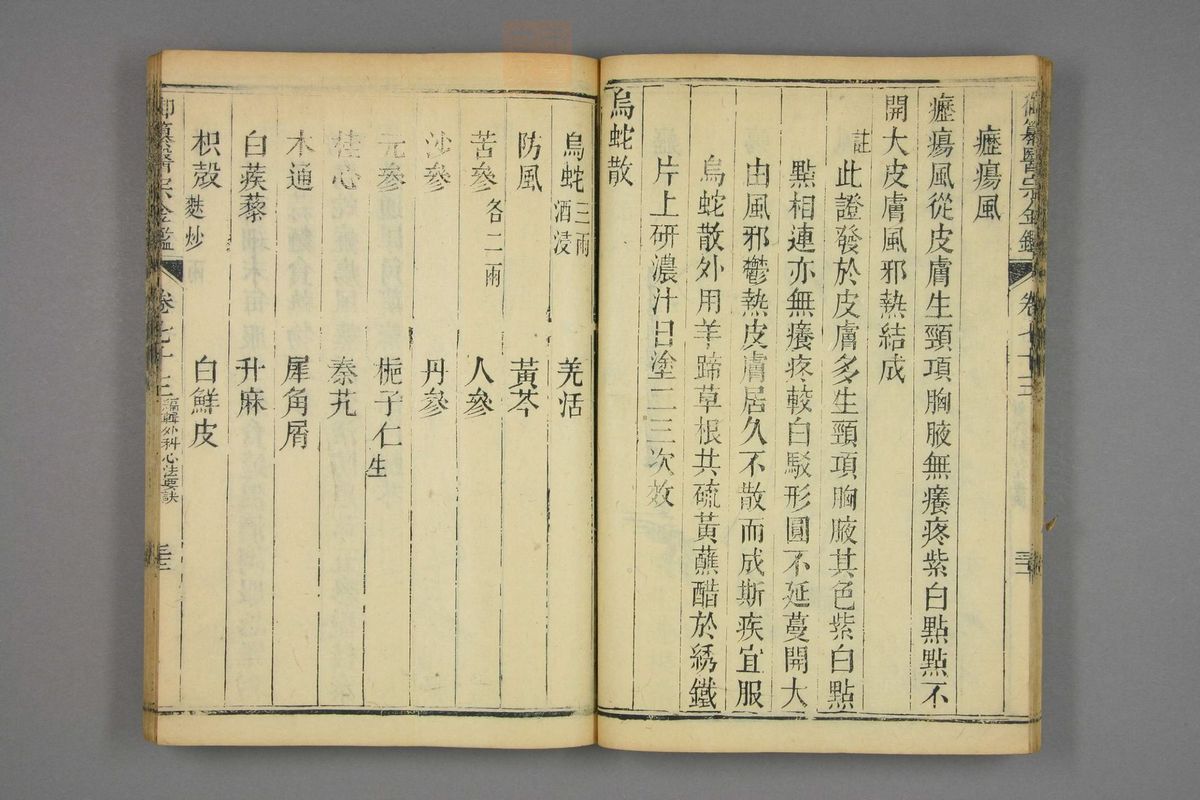 御纂醫宗金鑑 卷七十三
癧瘍風
癧瘍風從皮膚生頸項胸腋無癢疼紫白點點不
開大皮膚風邪熱結成
註此證發於皮膚多生頸項胸腋其色紫白點
點相連亦無癢疼較白駁形圓不延蔓開大
由風邪鬱熱皮膚居久不散而成斯疾宜服
烏蛇散外用羊蹄草根共硫黃蘸醋於綉鐵
片上研濃汁日塗二三次效
烏蛇散
烏蛇三兩酒浸 羌活
防風 黃芩
苦參各二兩 人參
沙參 丹參
元參 梔子仁生
桂心 秦艽
木通 犀角屑
白蒺藜 升麻
枳殼麩炒 白鮮皮
御纂醫宗金鑑 卷七十三 編輯外科心法要訣